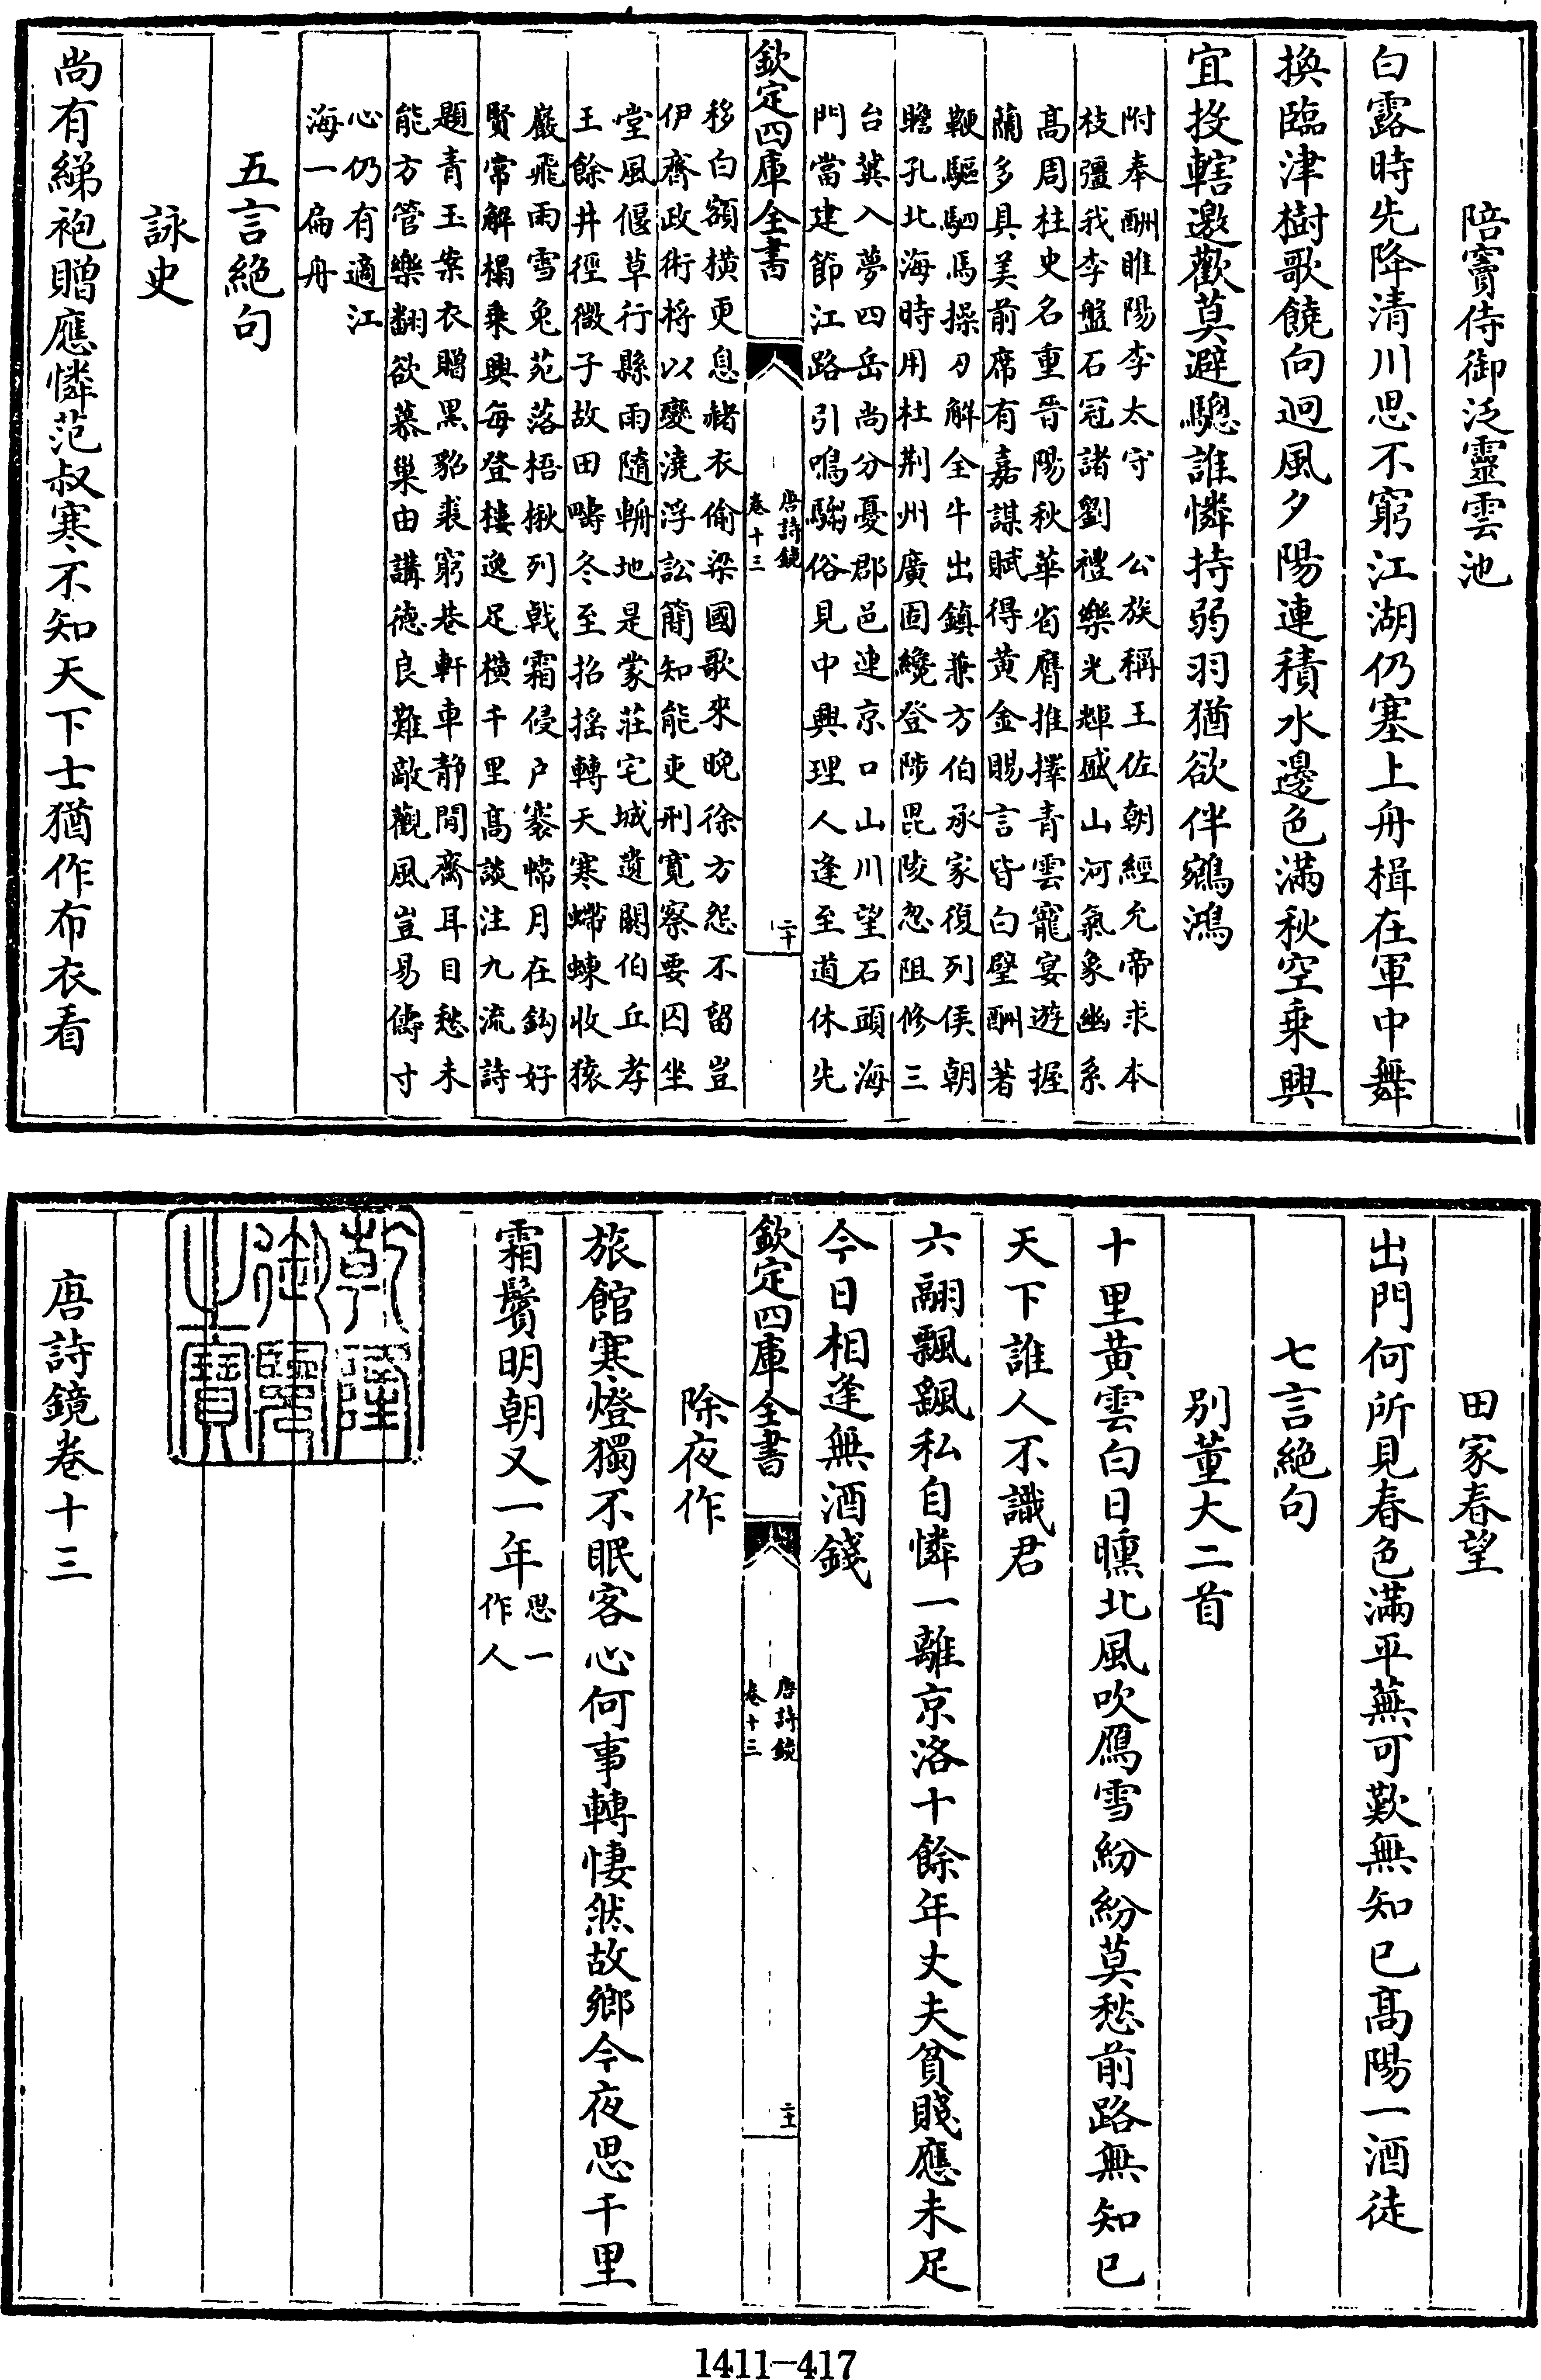 陪竇侍御泛靈雲池
白露時先降清川思不窮江湖仍塞上舟楫在軍中舞
換臨津樹歌饒向迥風夕陽連積水邊色滿秋空乗興
宜投轄邀歡莫避驄誰憐持弱羽猶欲伴鵷鴻
附奉酬睢陽李太守　公族稱王佐朝經允帝求本
枝彊我李盤石冠諸劉禮樂光輝盛山河氣象幽系
高周柱史名重晉陽秋華省膺推擇青雲寵宴遊握
蘭多具美前席有嘉謀賦得黄金賜言皆白璧酬著
鞭驅駟馬操刀解全牛出鎮兼方伯承家復列侯朝
瞻孔北海時用杜荆州廣固纔登陟毘陵忽阻修三
台冀入夢四岳尚分憂郡邑連京口山川望石頭海
門當建節江路引鳴騶俗見中興理人逢至道休先
欽定四庫全書
唐詩鏡
卷十三
二十
移白額横更息赭衣偷梁國歌來晚徐方怨不留豈
伊齊政術將以變澆浮訟簡知能吏刑寛察要囚坐
堂風偃草行縣雨隨輈地是蒙莊宅城遺閼伯丘孝
王餘井徑微子故田疇冬至招摇轉天寒螮蝀收猿
巖飛雨雪兔苑落梧楸列戟霜侵户褰幃月在鈎好
賢常解榻乗興每登樓逸足横千里高談注九流詩
題青玉案衣贈黑貂裘窮巷軒車静閒齋耳目愁未
能方管樂翻欲慕巢由講徳良難敵觀風豈易儔寸
心仍有適江
海一扁舟
五言絶句
詠史
尚有綈袍贈應憐范叔寒不知天下士猶作布衣看
田家春望
出門何所見春色滿平蕪可歎無知已高陽一酒徒
七言絶句
别董大二首
十里黄雲白日曛北風吹鴈雪紛紛莫愁前路無知已
天下誰人不識君
六翮飄飖私自憐一離京洛十餘年丈夫貧賤應未足
今日相逢無酒錢
欽定四庫全書
唐詩鏡
卷十三
二十一
除夜作
旅館寒燈獨不眠客心何事轉悽然故鄉今夜思千里
霜鬢明朝又一年
思一
作人
乾隆
御覽
之寶
唐詩鏡卷十三
1411—417